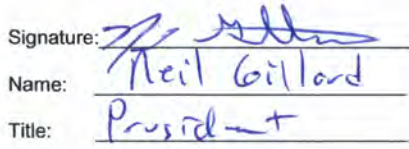 Signature:
Name: Neil Gillard
Title: President